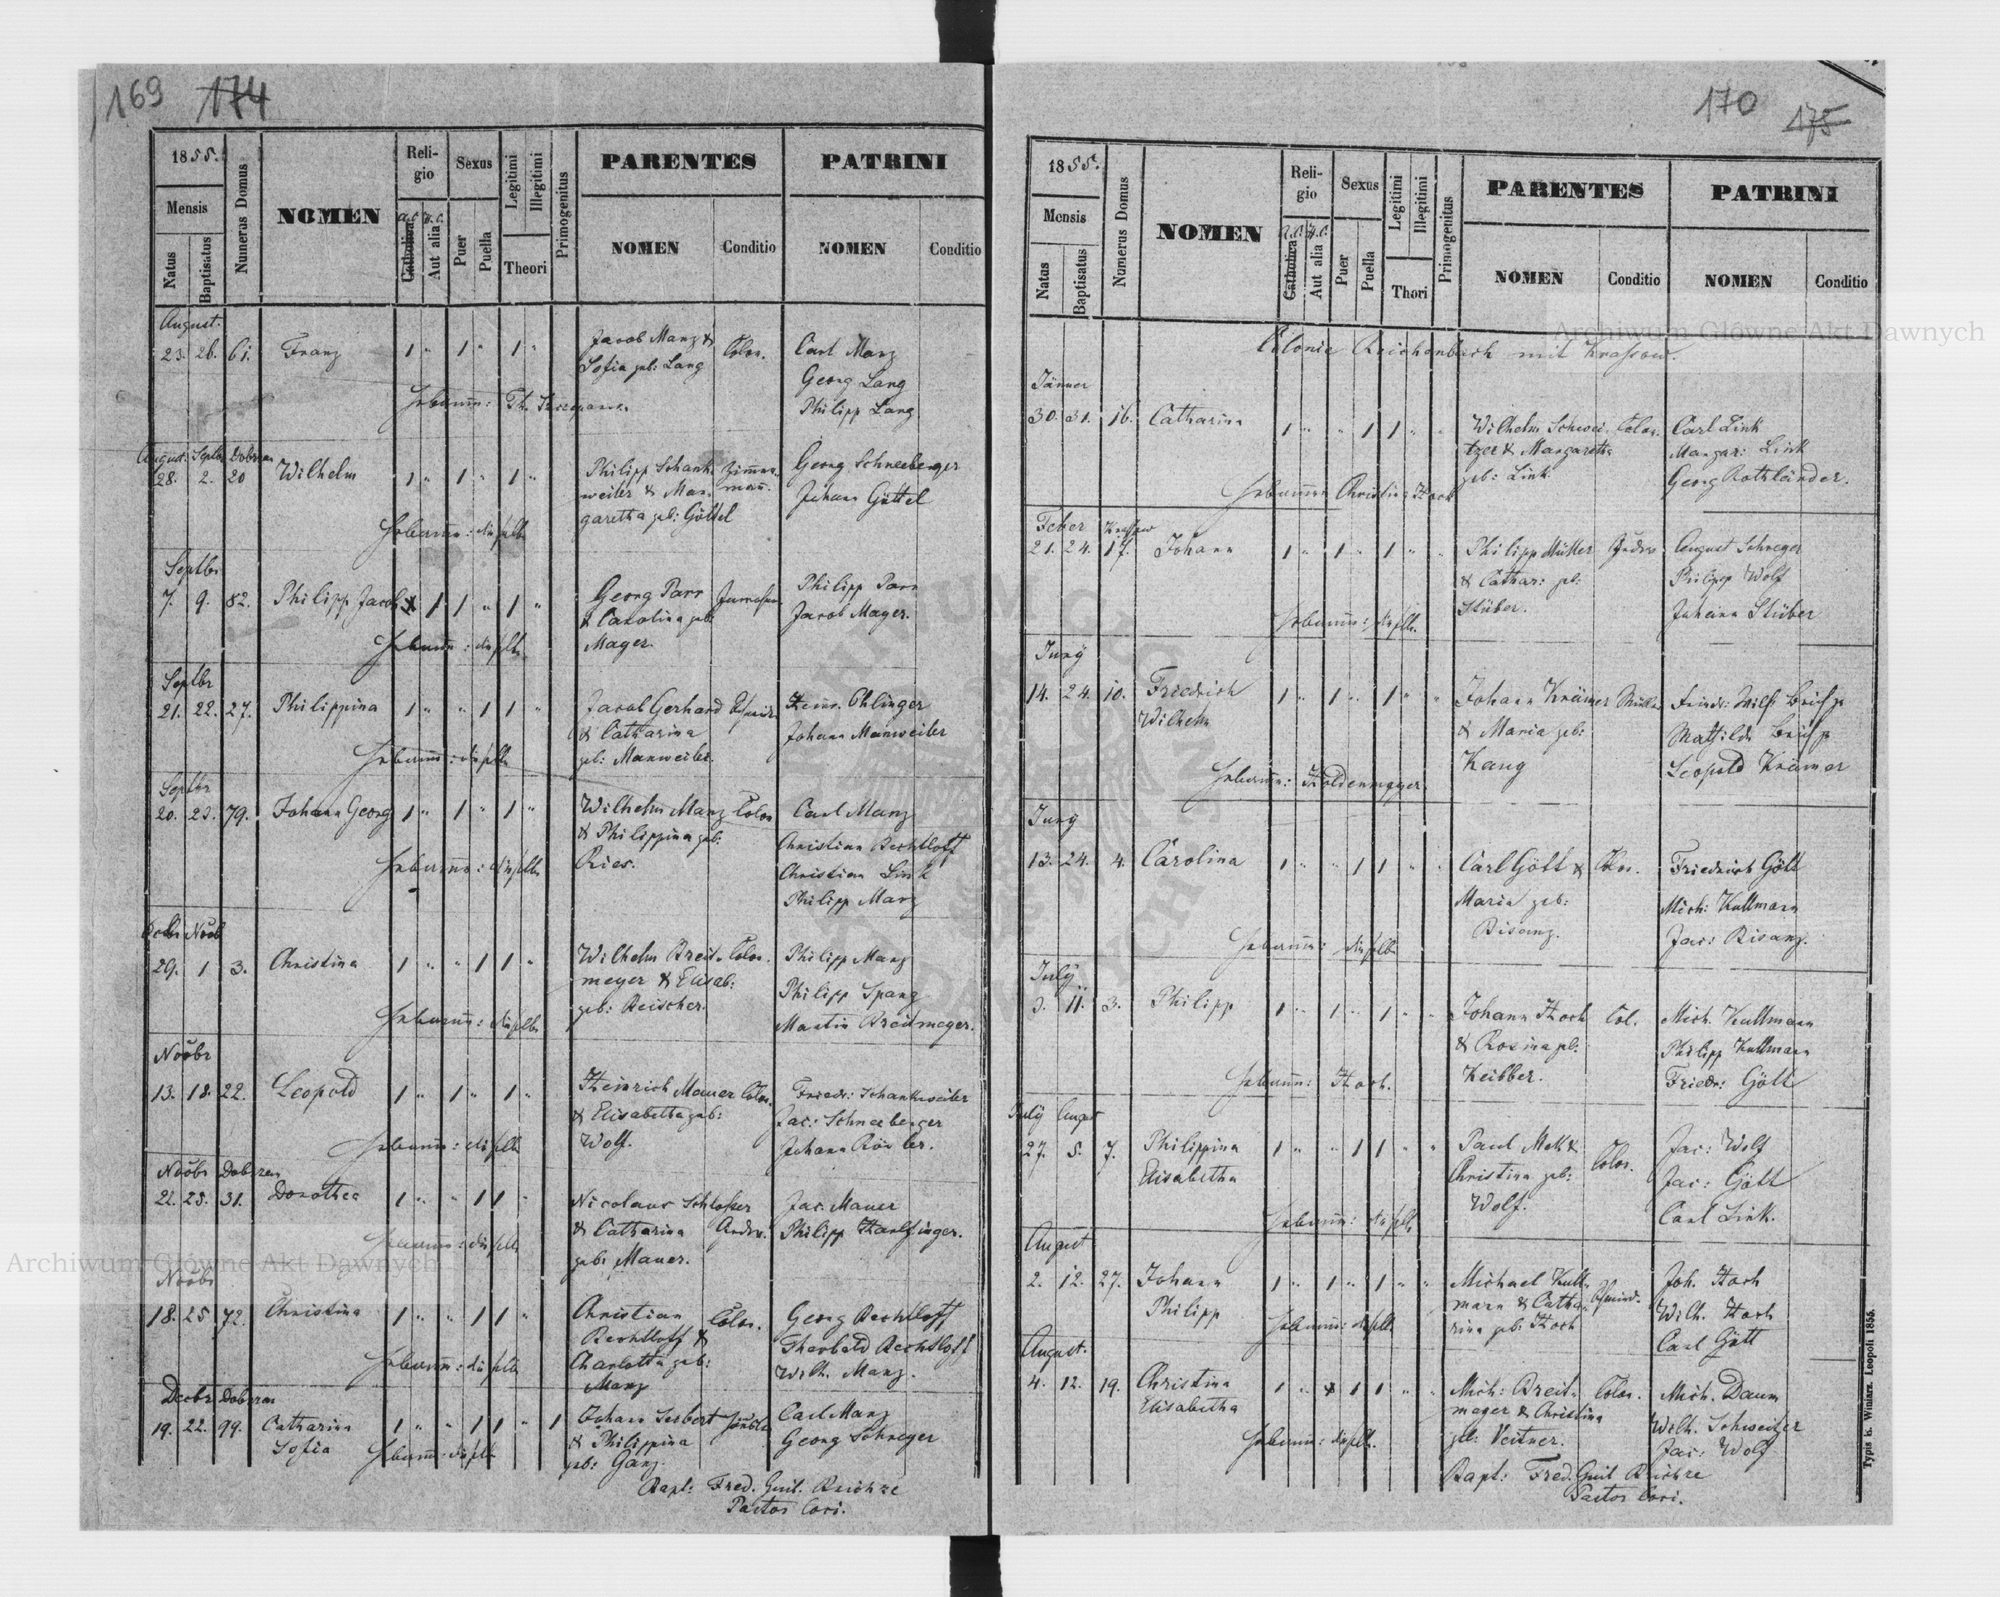 169 174
1855.
Mensis
Natus
Baptisatus
Numerus Domus
NOMEN
Reli-
gio
Catholica
a.c.
Aut alia
h.c.
Sexus
Puer
Puella
Legitimi
Illegitimi
Theori
Primogenitus
PARENTES
NOMEN
Conditio
PATRINI
NOMEN
Conditio
August.
23. 26. 61. Franz 1 " 1 " 1 " Jacob Manz & Colon. Carl Manz
Sofia geb: Lang Georg Lang
Hebamm: Philipp Lang
August Septbr Dobrzan
28. 2. 20 Wilhelm 1 " 1 " 1 " Philipp Schank- Zimmer- Georg Schneeberger
weiler & Mar- mann. Johann Göttel
garetha geb: Göttel
Hebamm: dieselbe
Septbr
7. 9. 82. Philipp Jacob 1 1 " 1 " Georg Parr Philipp Parr
& Carolina geb: Jacob Mager.
Hebamm: dieselbe Mager.
Septbr
21. 22. 27. Philippina 1 " " 1 1 " Jacob Gerhard Heinr. Ohlinger
& Catharina Johann Manweiler
Hebamm: dieselbe geb: Manweiler.
Septbr
20. 23. 79. Johann Georg 1 " 1 " 1 " Wilhelm Manz Colon Carl Manz
& Philippina geb: Christian Bechtloff
Hebamm: dieselbe Ries. Christian Link
Philipp Manz
Octbr Novb
29. 1 3. Christina 1 " " 1 1 " Wilhelm Breit- Colon. Philipp Manz
meyer & Elisab: Philipp Spang
geb: Reischer. Martin Breitmeyer.
Hebamm: dieselbe
Novbr
13. 18. 22. Leopold 1 " 1 " 1 " Heinrich Mauer Colon. Friedr: Schankweiler
& Elisabetha geb: Jac: Schneeberger
Hebamm: dieselbe Wolf. Johann
Novbr Dobrzan
22. 25. 31. Dorothea 1 " " 1 1 " Nicolaus Schlosser Jac. Mauer
& Catharina Philipp Harlfinger.
Hebamm: dieselbe geb: Mauer.
Novbr
18. 25 72. Christina 1 " " 1 1 " Christian Colon. Georg Bechtloff
Bechtloff & Theobald Bechtloff
Hebamm: dieselbe Charlotta geb: Wilh. Manz.
Manz
Decbr Dobrzan
19. 22. 99. Catharina 1 " " 1 1 " 1 Johann Seibert Carl Manz
Sofia & Philippina Georg Schreyer
Hebamm: dieselbe geb: Ganz.
Bapt: Fred. Guil. Reichze
Pastor loci.
170 175
1855.
Mensis
Natus
Baptisatus
Numerus Domus
NOMEN
Reli-
gio
Catholica
a.c.
Aut alia
h.c.
Sexus
Puer
Puella
Legitimi
Illegitimi
Thori
Primogenitus
PARENTES
NOMEN
Conditio
PATRINI
NOMEN
Conditio
Archiwum Główne Akt Dawnych
Colonie Reichenbach mit Krassow.
Jänner
30. 31. 16. Catharina 1 " " 1 1 " " Wilhelm Schwei- Colon. Carl Link
tzer & Margaretha Margar: Link
geb: Link Georg Rothländer.
Hebamme Christine Koch
Feber Krassow
21. 24. 17. Johann 1 " 1 " 1 " " Philipp Müller August Schreyer
& Cathar: geb: Philipp Wolf
Stüber. Johann Stüber
Hebamm: dieselbe.
Juny
14. 24. 10. Friedrich 1 " 1 " 1 " " Johann Krämer Müller Friedr: Wilh
Wilhelm & Maria geb: Mathilde
Kang Leopold Krämer
Hebamm: Holdenmeyer.
Juny
13. 24. 4. Carolina 1 " " 1 1 " " Carl Gött & Colon. Friedrich Gött
Maria geb: Mich: Kullmann
Bisanz. Jac: Bisanz.
Hebamm: dieselbe
July
3. 11. 3. Philipp 1 " 1 " 1 " " Johann Koch Col. Mich. Kullmann
& Rosina geb: Philipp Kullmann
Keibber. Friedr: Gött
Hebamm: Koch.
July August
27. 5. 7. Philippina 1 " " 1 1 " " Paul Mek & Colon. Jac: Wolf
Elisabetha Christina geb: Jac: Gött
Wolf. Carl Link.
Hebamm: dieselbe
August
2. 12. 27. Johann 1 " 1 " 1 " " Michael Kull- Joh. Koch
Philipp mann & Catha- Wilh. Koch
Hebamm: dieselbe rina geb: Koch Carl Gött
August.
4. 12. 19. Christina 1 " 1 1 " " Mich: Breit- Colon. Mich. Daum
Elisabetha meyer & Christina Wilh. Schweitzer
Hebamm: dieselbe. geb: Veitner. Jac: Wolf
Bapt: Fred. Guil Reichze
Pastor loci.
Typis E. Winiarz. Leopoli 1855.
Archiwum Główne Akt Dawnych